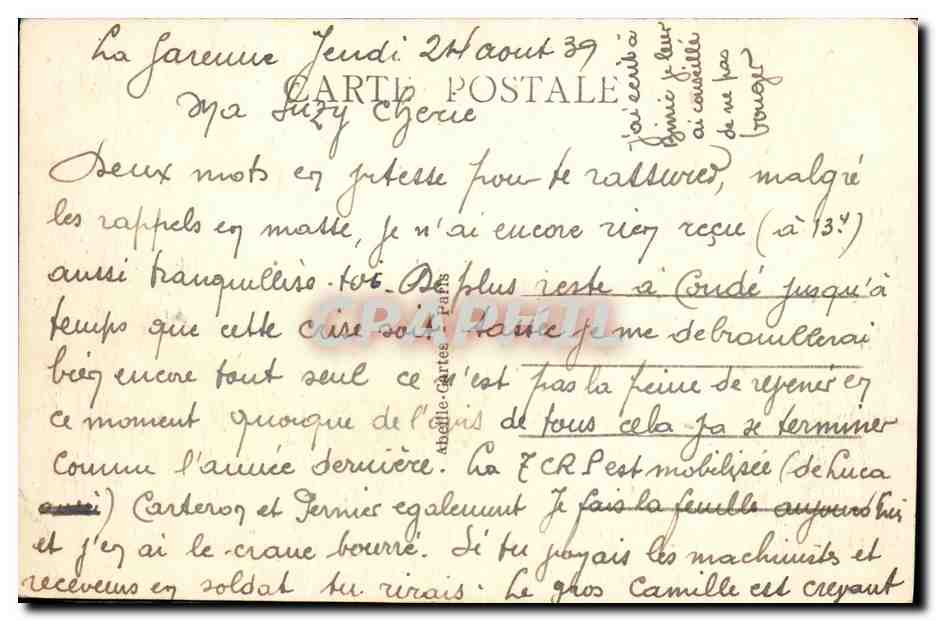 La Garenne Jeudi 24 aout 39
CARTE POSTALE
Ma Suzy Cherie
Deux mots en vitesse pour te rassurer, malgré
les rappels en masse, je n'ai encore rien reçu (à 13H)
aussi tranquillise-toi. De plus reste à Condé jusqu'à
temps que cette crise soit tassée je me debrouillerai
bien encore tout seul ce n'est pas la peine de revenir en
ce moment quoique de l'avis de tous cela va se terminer
comme l'année dernière. La TCRP est mobilisée (de Luca
aussi) Carteron et Pernier egalement Je fais la feuille aujourd'hui
et j'en ai le crane bourré. Si tu voyais les machinistes et
receveurs en soldat tu rirais. Le gros Camille est crevant
j'ai écrit à
je leur
ai conseillé
de ne pas
bouger
Abeille-Cartes - Paris
CPAPHIL